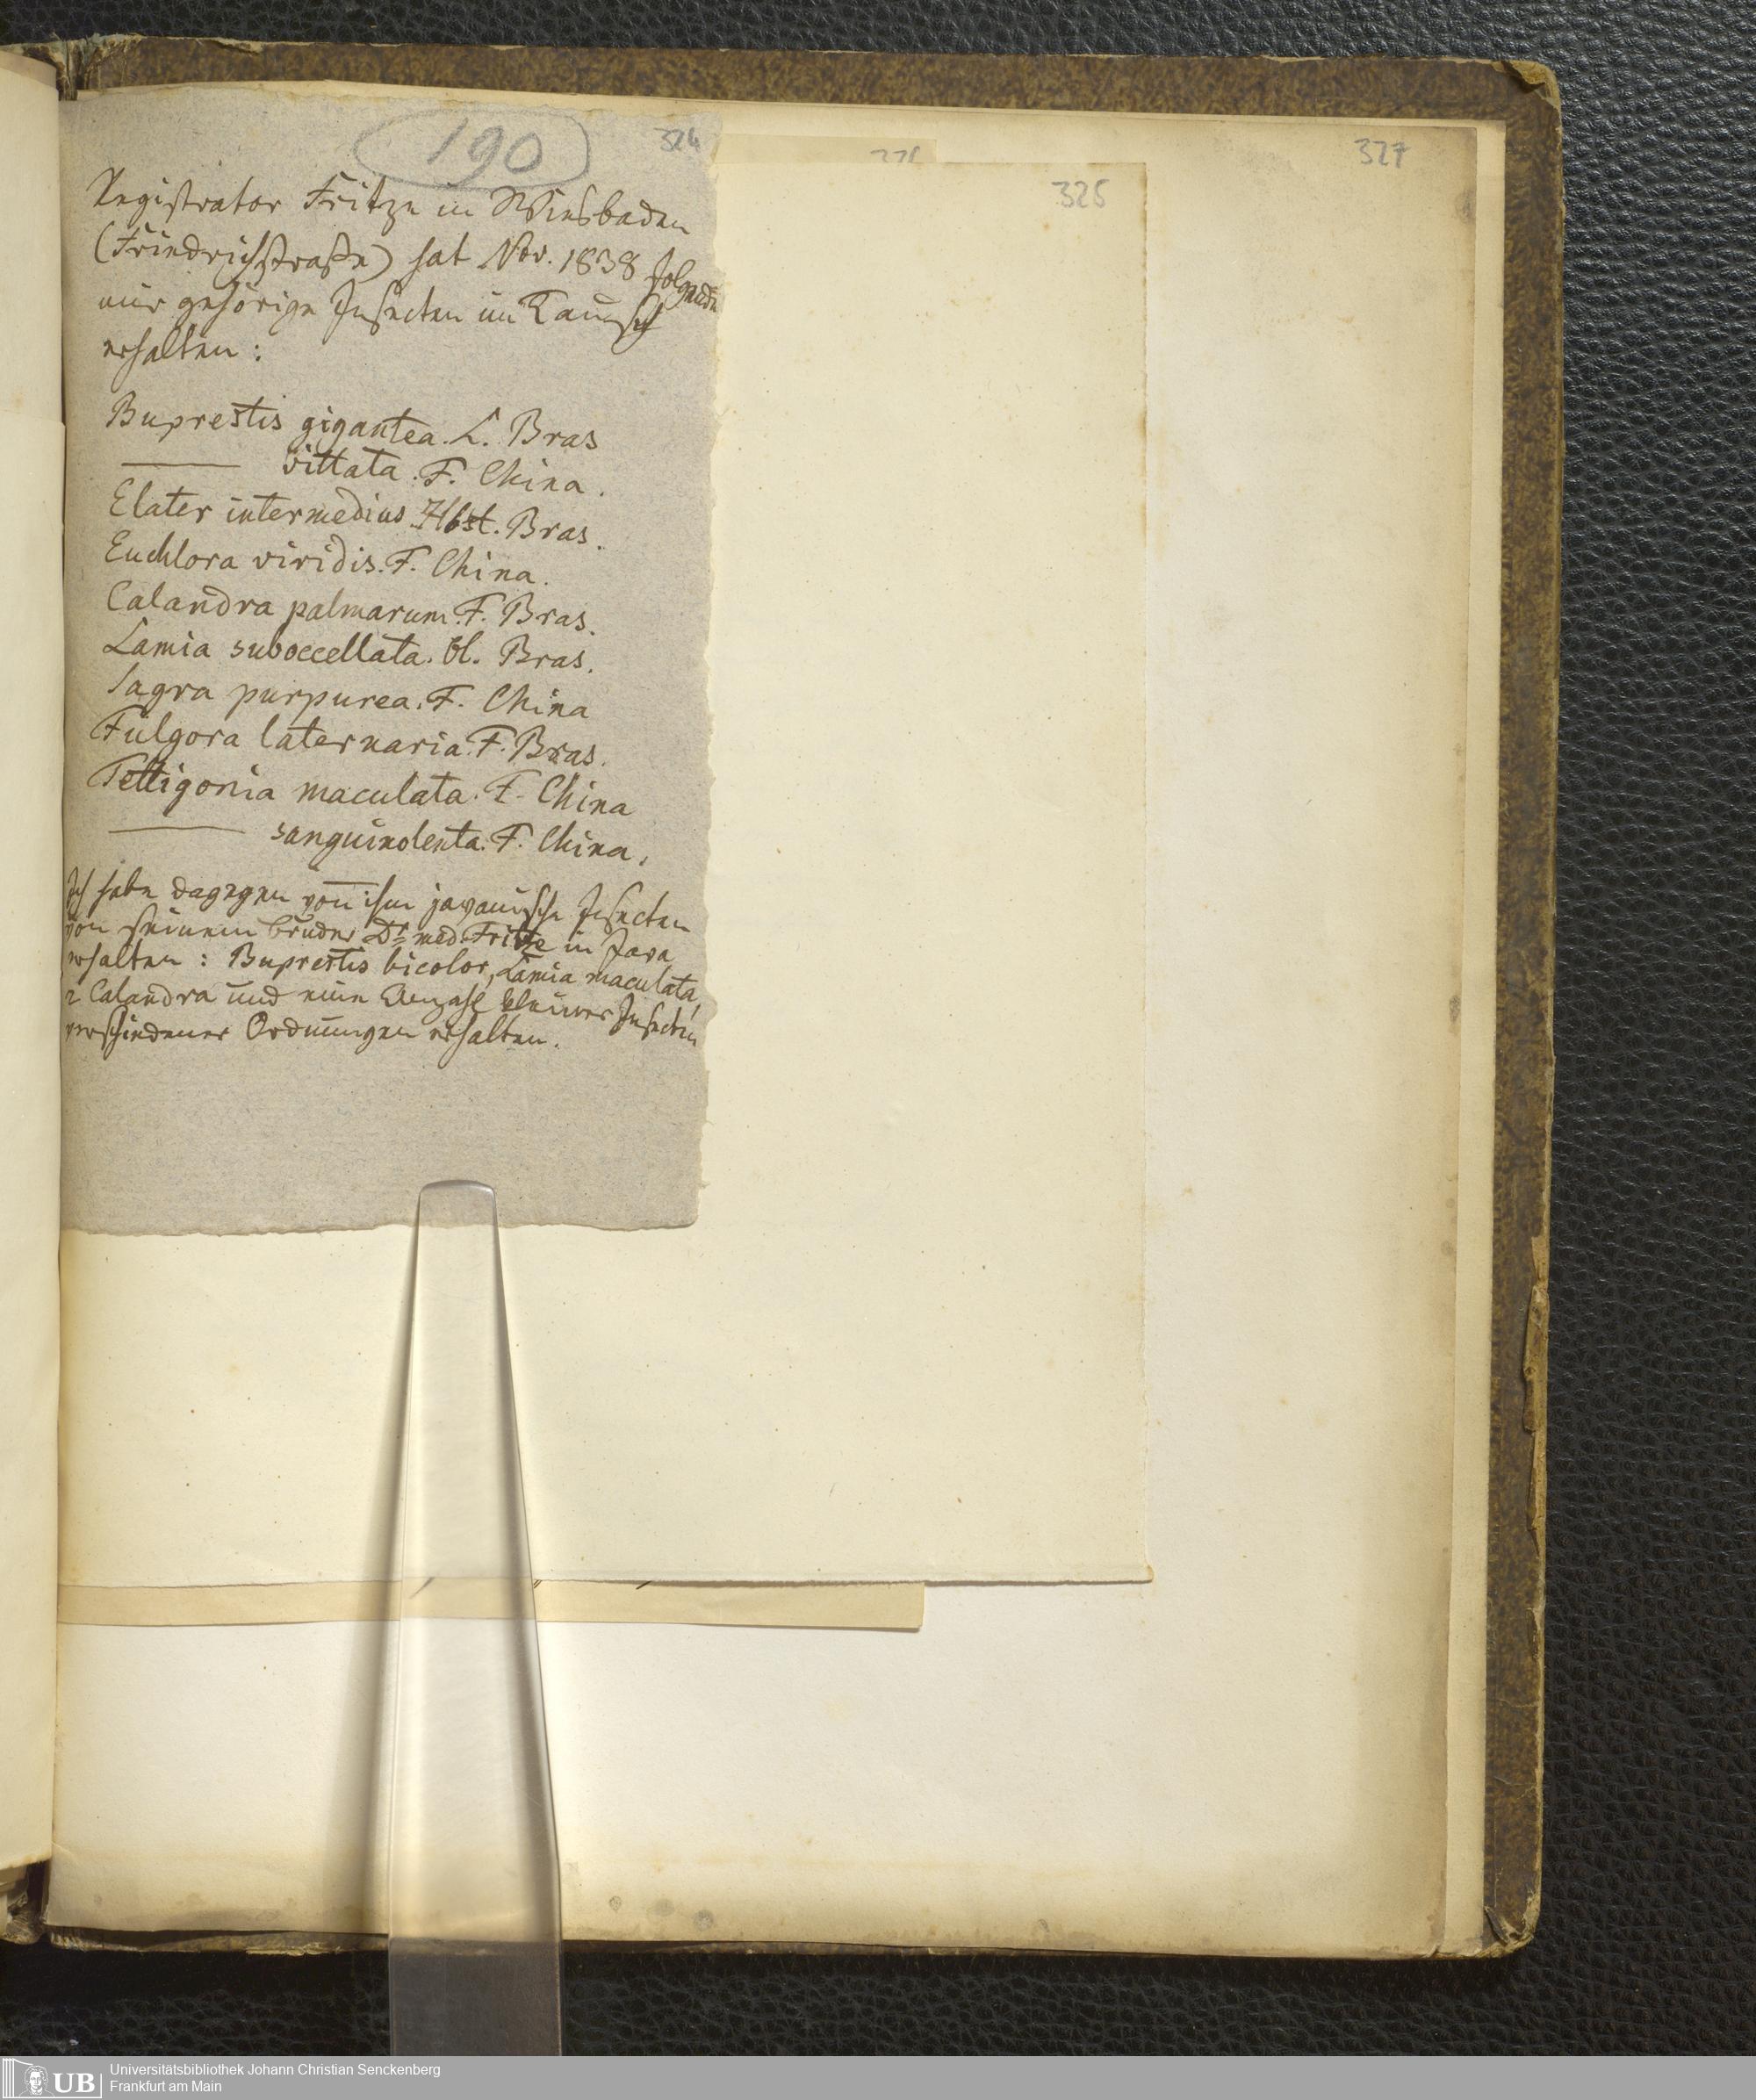 190
324
325
327
Registrator Fritze in Wiesbaden
(Friedrichstraße) hat Nov. 1838 folgende
mir gehörige Insecten im Tausch
erhalten:
Buprestis gigantea. L. Bras
——— vittata. F. China.
Elater intermedius. Hbst. Bras.
Euchlora viridis. F. China.
Calandra palmarum. F. Bras.
Lamia subocellata. Ol. Bras.
Sagra purpurea. F. China
Fulgora laternaria. F. Bras.
Tettigonia maculata. F. China
——— sanguinolenta. F. China.
Ich habe dagegen von ihm javanische Insecten
von seinem Bruder Dr med. Fritze in Java
erhalten: Buprestis bicolor, Lamia maculata,
2 Calandra und eine Anzahl kleiner Insecten
verschiedener Ordnungen erhalten.
UB
Universitätsbibliothek Johann Christian Senckenberg
Frankfurt am Main